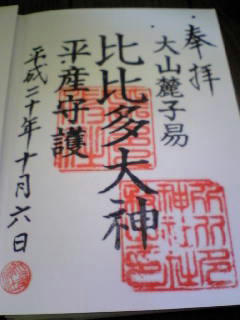 奉拝
大山麓子易
比比多大神
平産守護
平成二十年十月六日